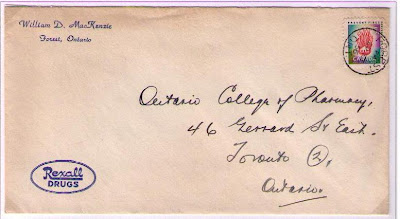 William D. MacKenzie
Forest, Ontario
Ontario College of Pharmacy,
46 Gerrard St East.
Toronto 2,
Ontario.
Rexall
DRUGS